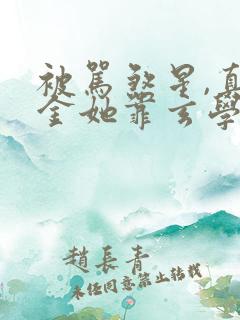 被罵煞星,真
金她靠玄學
趙長青
未經同意禁止轉載